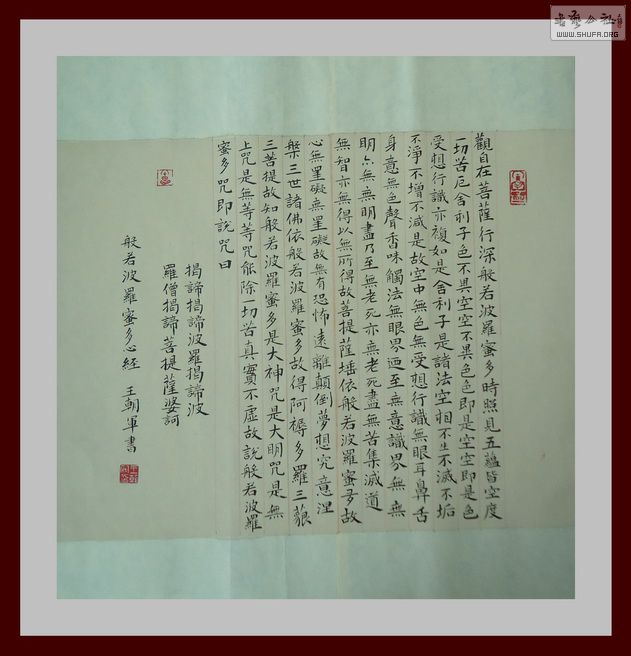 觀自在菩薩行深般若波羅蜜多時照見五蘊皆空度
一切苦厄舍利子色不異空空不異色色即是空空即是色
受想行識亦複如是舍利子是諸法空相不生不滅不垢
不淨不增不減是故空中無色無受想行識無眼耳鼻舌
身意無色聲香味觸法無眼界迺至無意識界無無
明亦無無明盡乃至無老死亦無老死盡無苦集滅道
無智亦無得以無所得故菩提薩埵依般若波羅蜜多故
心無罣礙無罣礙故無有恐怖遠離顛倒夢想究竟涅
槃三世諸佛依般若波羅蜜多故得阿耨多羅三藐
三菩提故知般若波羅蜜多是大神咒是大明咒是無
上咒是無等等咒能除一切苦真實不虛故說般若波羅
蜜多咒即說咒曰
揭諦揭諦波羅揭諦波
羅僧揭諦菩提薩婆訶
般若波羅蜜多心經 王朝軍書
書藝公社
WWW.SHUFA.ORG